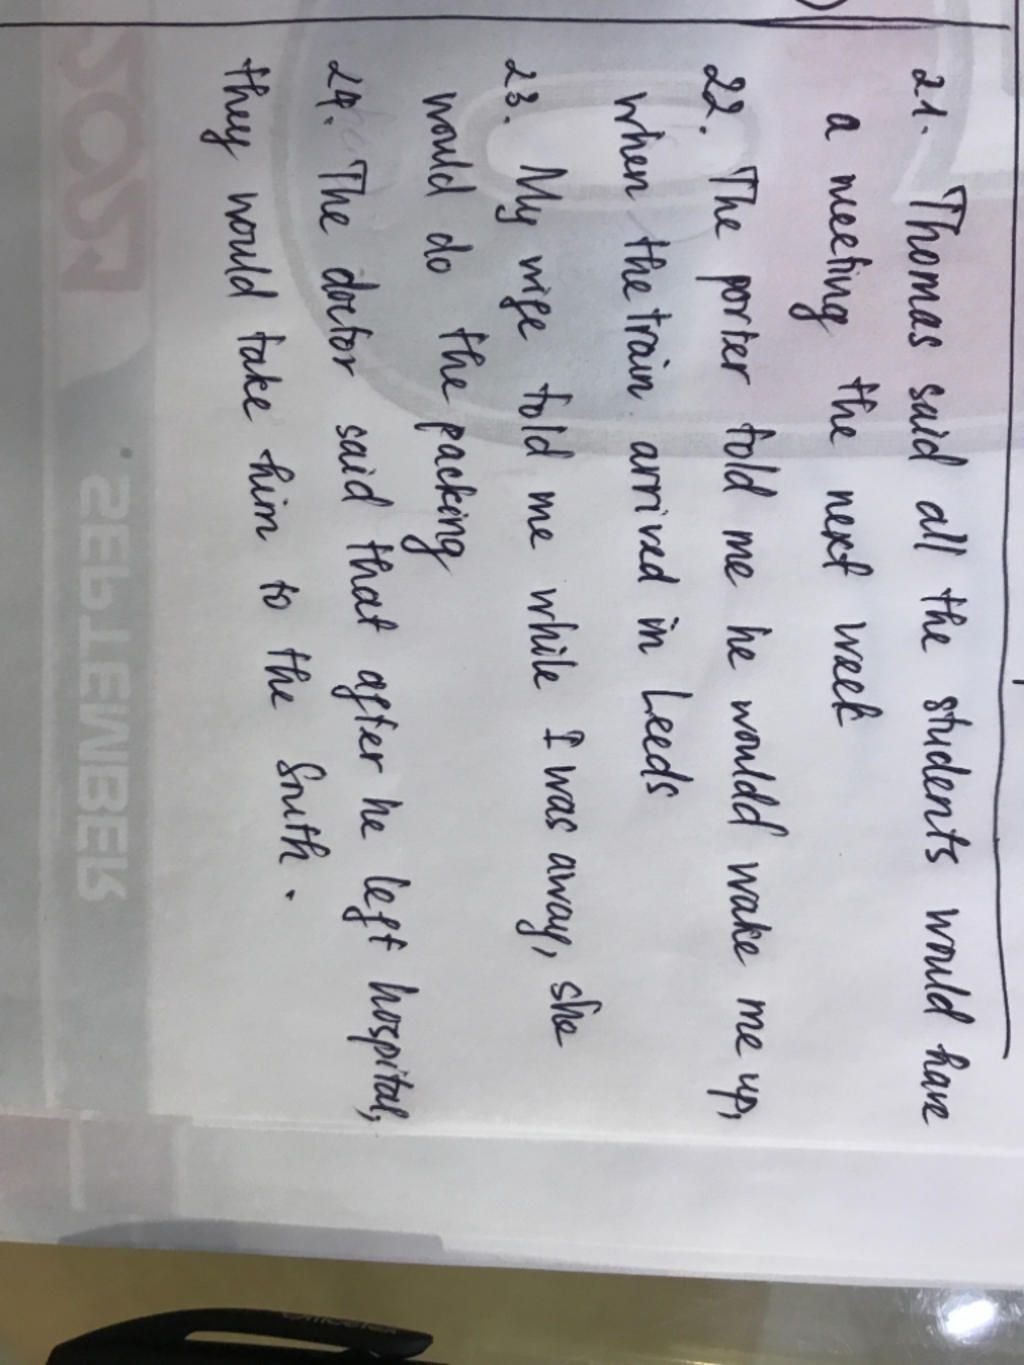 21. Thomas said all the students would have
a meeting the next week
22. The porter told me he wouldd wake me up,
when the train arrived in Leeds
23. My wife told me while I was away, she
would do the packing
24. The doctor said that after he left hospital,
they would take him to the South.
SEPTEMBER